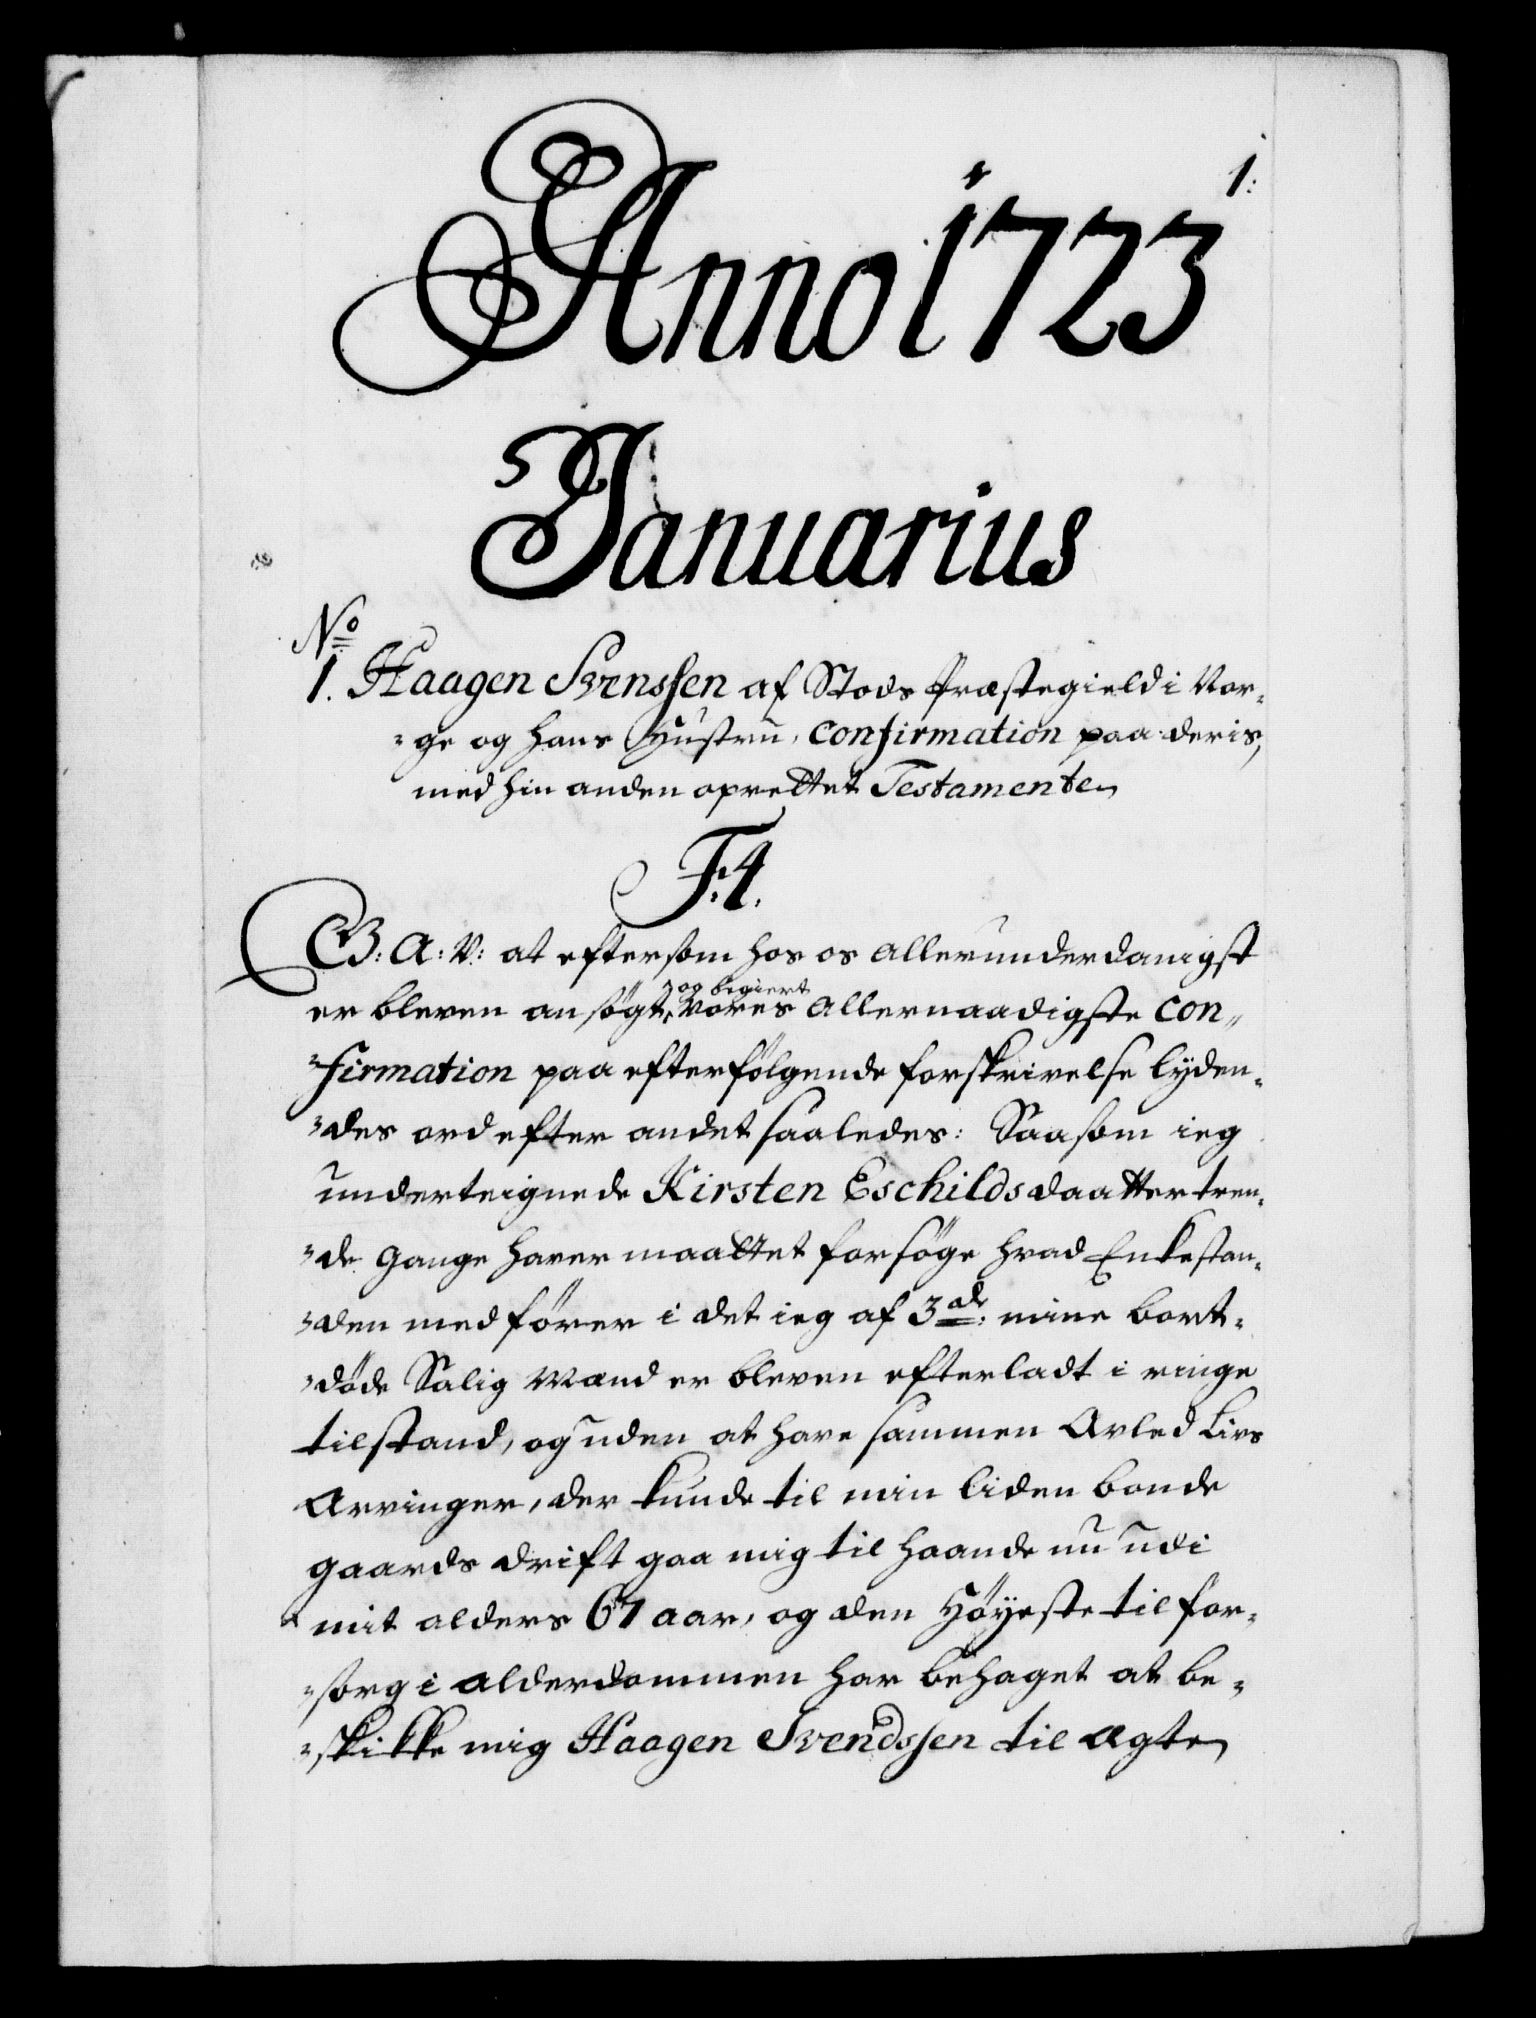 1:
Anno 1723
Januarius
No
1. Haagen Svenssen af Stods Præstegield i Nor-
-ge og hans Hustru, Confirmation paa deris,
med hin anden oprettet Testamente
F:4.
G: A: V: at eftersom hos os allerunderdanigst
er bleven ansøgt, og begiert vores allernaadigste Con-
firmation paa efterfølgende forskrivelse lyden-
-des ord efter andet saaledes: Saasom ieg
underteignede Kirsten Eschildsdaatter tren-
-de gange haver maattet forsøge hvad Enkestan-
-den medfører i det ieg af 3de: mine bort-
-døde Salig Mænd er bleven efterladt i ringe
tilstand, og uden at have sammen Avled Livs
Arvinger, der kunde til min liden bonde
gaards drift gaa mig til haande nu udi
mit alders 67 aar, og den Høyeste til for-
-sorg i alderdommen har behaget at be-
-skikke mig Haagen Svendssen til Ægte